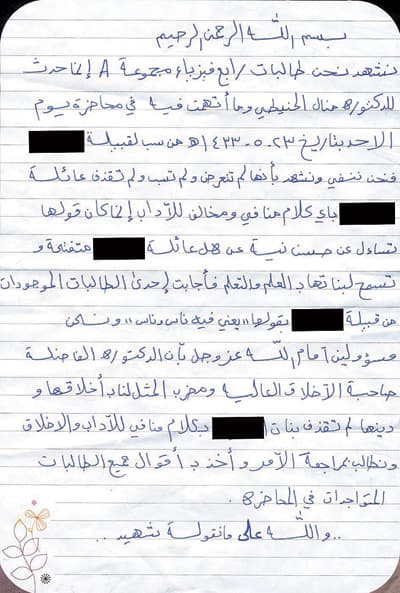 بسم اللّٰه الرحمن الرحيم
نشهد نحن طالبات رابع فيزياء مجموعة A إنما حدث
للدكتوره منال الخنيطي وما أتهمت فيه في محاضرة يوم
الاحد بتاريخ ٢٣-٥-١٤٣٣هـ من سب لقبيلة
فنحن ننفي ونشهد بأنها لم تتعرض ولم تسب ولم تقذف عائلة
بأي كلام منافي ومخالف للآداب إنما كان قولها
تساءل عن حسن نية عن هل عائلة متفتحة و
تسمح لبناتها بالعلم والتعلم فأجابت إحدى الطالبات الموجودات
من قبيلة بقولها "يعني فيه ناس وناس" ونحن
مسؤولين أمام اللّٰه عز وجل بأن الدكتوره الفاضلة
صاحبة الآخلاق العالية ومضرب المثل لنا بأخلاقها و
دينها لم تقذف بنات ا بكلام منافي للآداب والاخلاق
ونطالب بمراجعة الآمر وأخذ بأقوال جميع الطالبات
المتواجدات في المحاضره.
..واللّٰه على مانقولة شهيد..